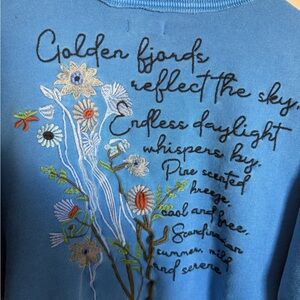 Golden fjords
reflect the sky.
Endless daylight
whispers by.
Pine scented
breeze,
cool and free.
Scandinavian
summer, mild
and serene